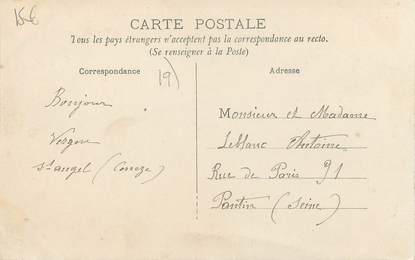 15€
CARTE POSTALE
Tous les pays étrangers n'acceptent pas la correspondance au recto.
(Se renseigner à la Poste)
Correspondance
19)
Adresse
Bonjour
St angel (Correze)
Monsieur et Madame
Leblanc Antoine
Rue de Paris 91
Pantin (Seine)